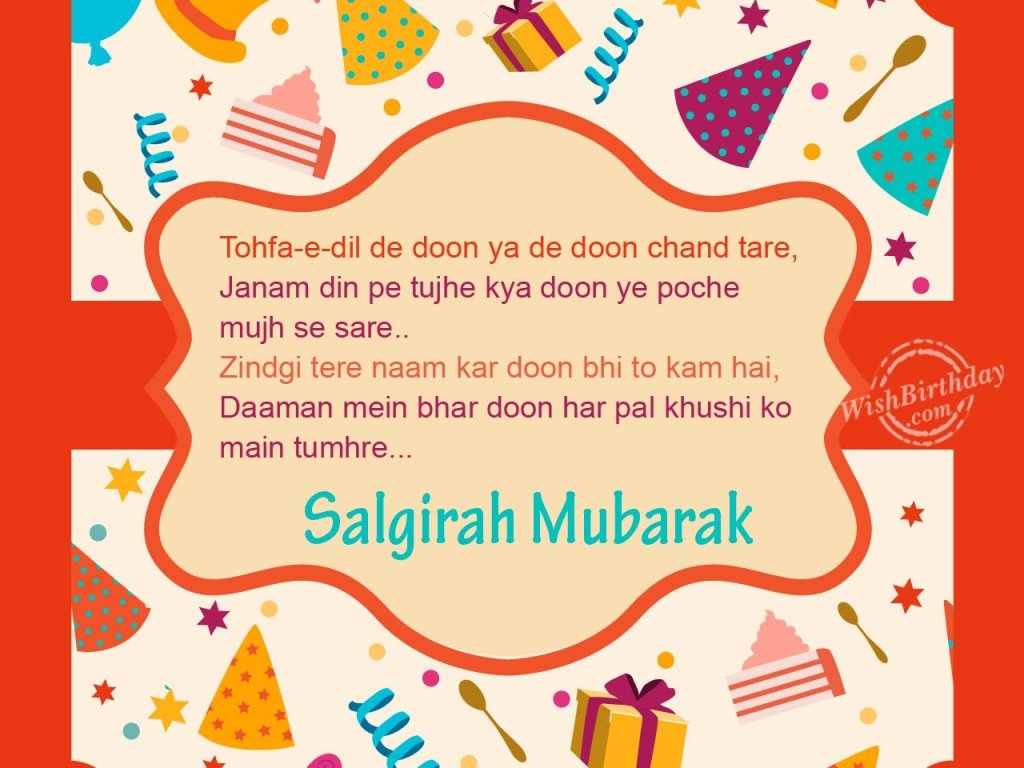 Tohfa-e-dil de doon ya de doon chand tare,
Janam din pe tujhe kya doon ye poche
mujh se sare..
Zindgi tere naam kar doon bhi to kam hai,
Daaman mein bhar doon har pal khushi ko
main tumhre...
Salgirah Mubarak
WishBirthday
.com